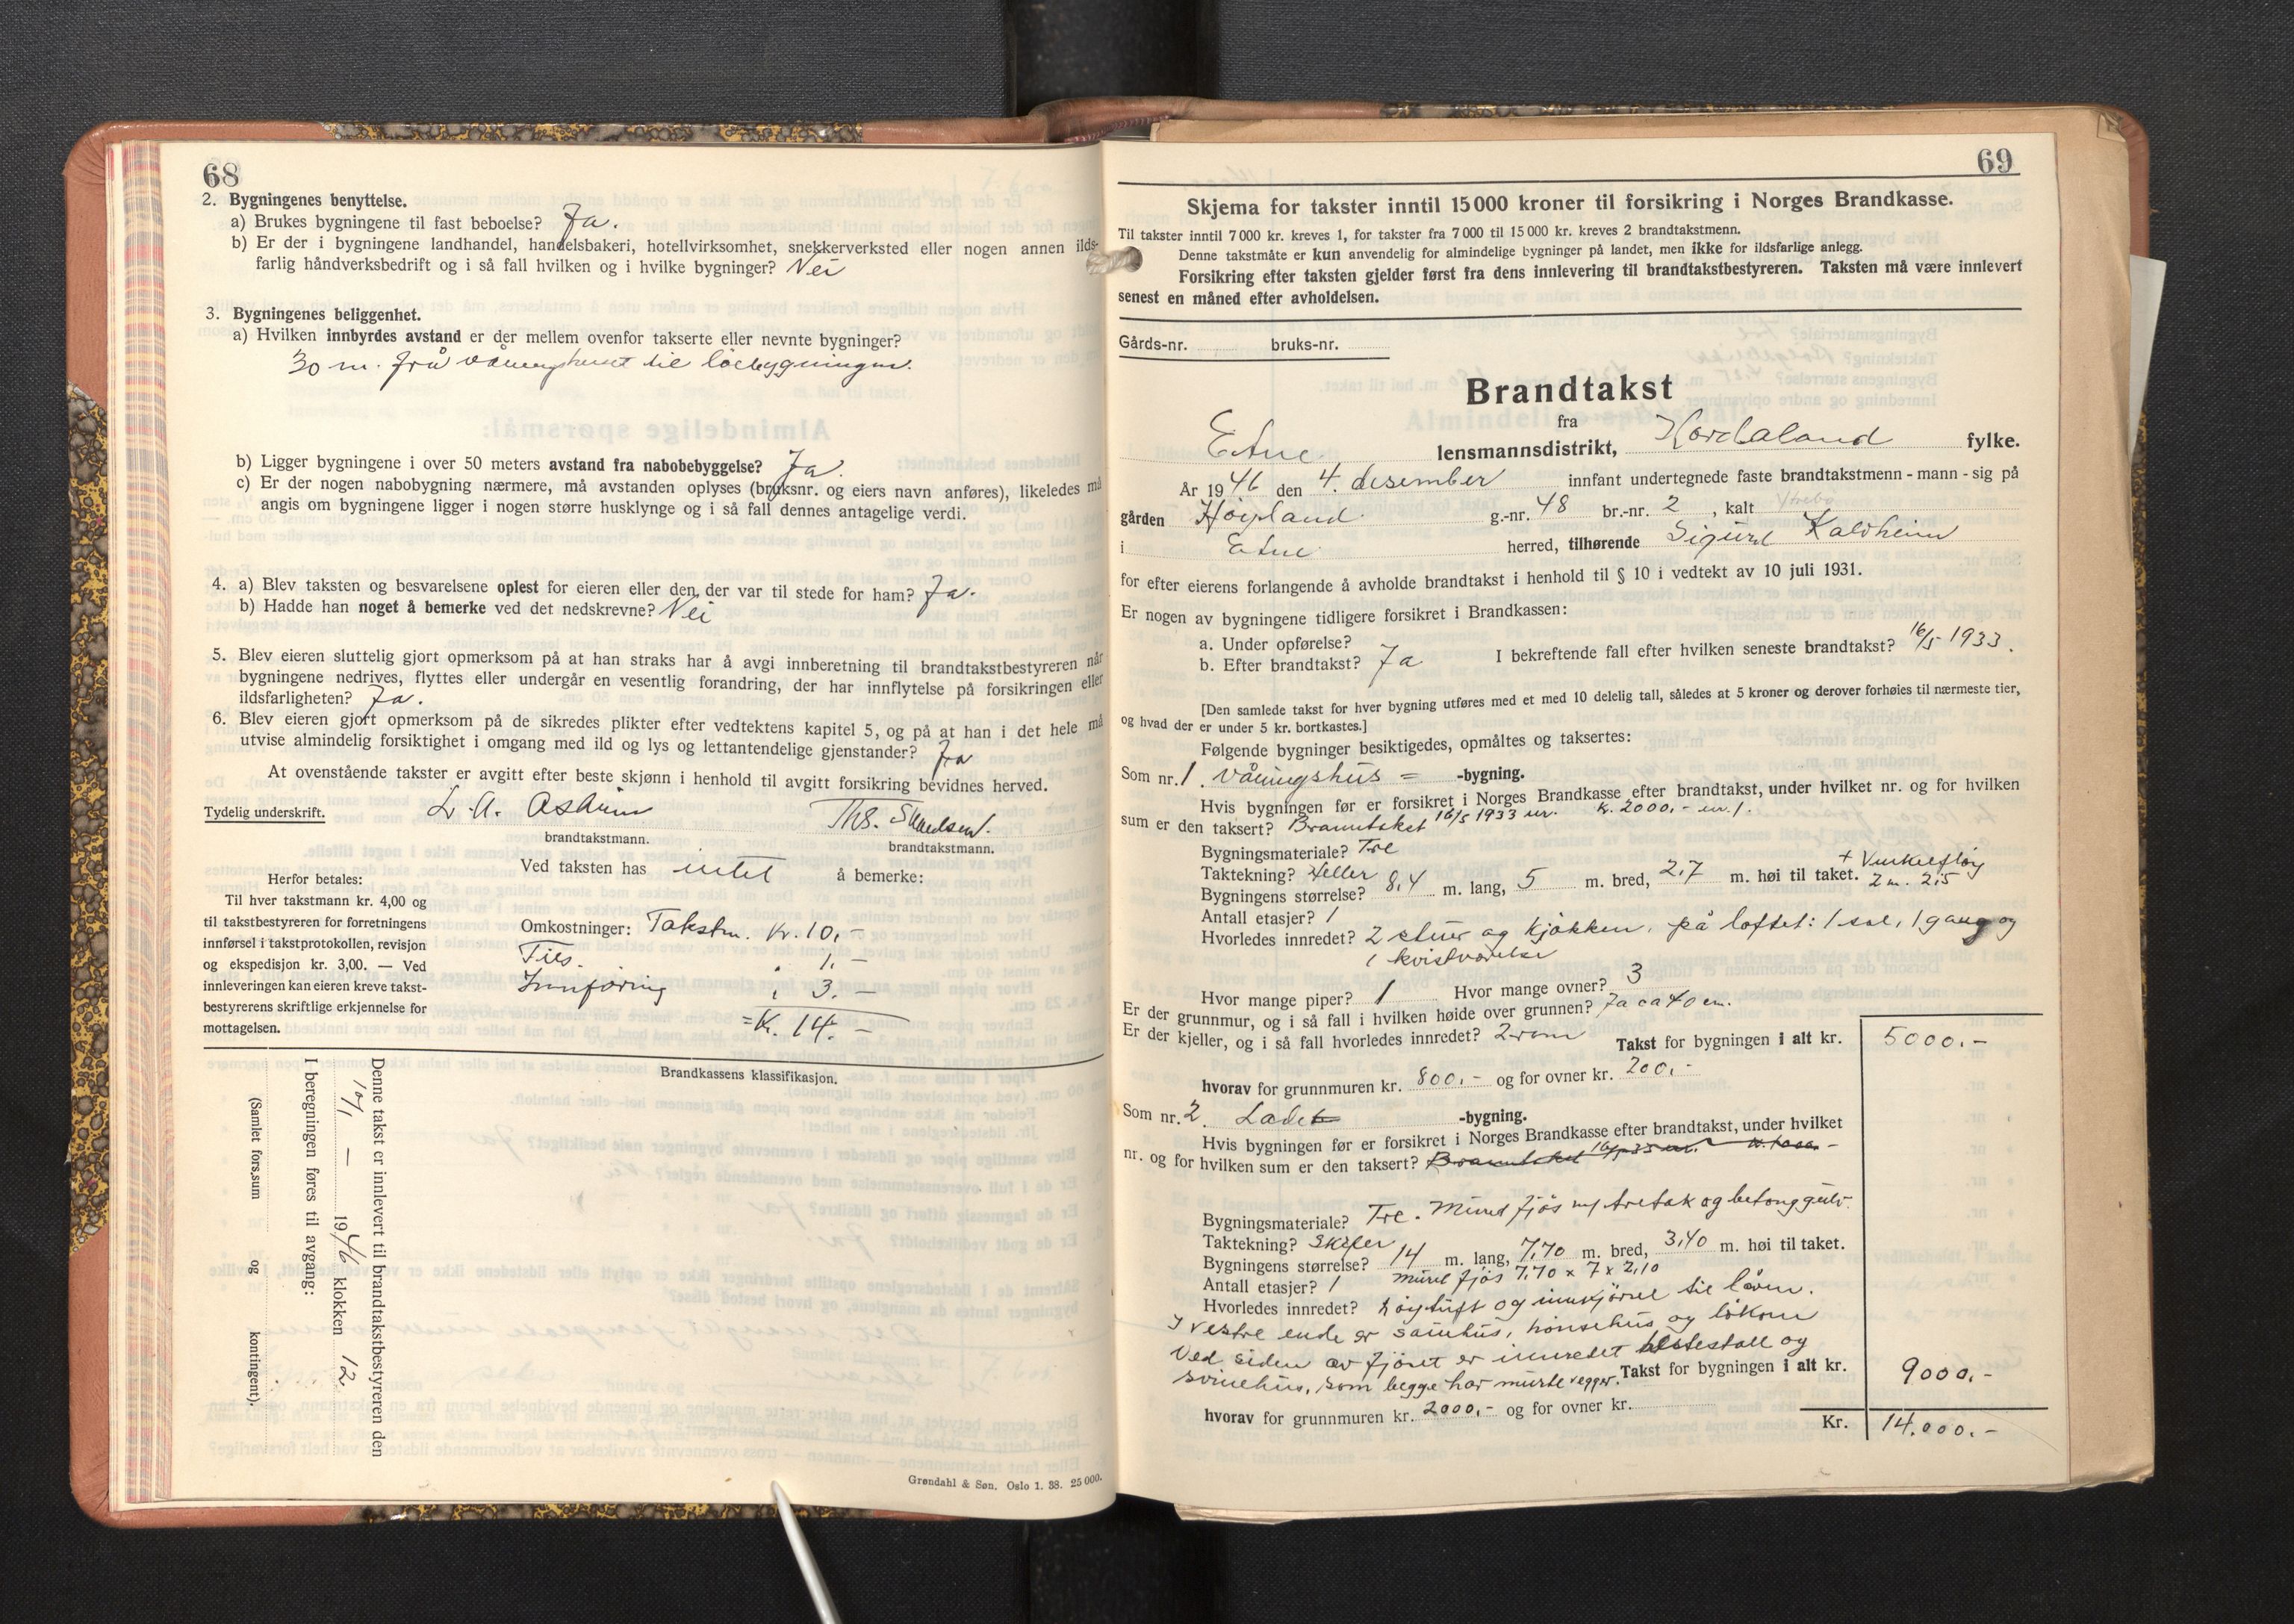 68
2. Bygningenes benyttelse.
a) Brukes bygningene til fast beboelse? Ja.
b) Er der i bygningene landhandel, handelsbakeri, hotellvirksomhet, snekkerverksted eller nogen annen ilds-
farlig håndverksbedrift og i så fall hvilken og i hvilke bygninger? Nei
3. Bygningenes beliggenhet.
a) Hvilken innbyrdes avstand er der mellem ovenfor takserte eller nevnte bygninger?
30 m. frå våningshuset til löebygningen.
b) Ligger bygningene i over 50 meters avstand fra nabobebyggelse? Ja.
c) Er der nogen nabobygning nærmere, må avstanden oplyses (bruksnr. og eiers navn anføres), likeledes må
angis om bygningene ligger i nogen større husklynge og i så fall dennes antagelige verdi.
4. a) Blev taksten og besvarelsene oplest for eieren eller den, der var til stede for ham? Ja.
b) Hadde han noget å bemerke ved det nedskrevne? Nei
5. Blev eieren sluttelig gjort opmerksom på at han straks har å avgi innberetning til brandtakstbestyreren når
bygningene nedrives, flyttes eller undergår en vesentlig forandring, der har innflytelse på forsikringen eller
ildsfarligheten? Ja.
6. Blev eieren gjort opmerksom på de sikredes plikter efter vedtektens kapitel 5, og på at han i det hele må
utvise almindelig forsiktighet i omgang med ild og lys og lettantendelige gjenstander? Ja
At ovenstående takster er avgitt efter beste skjønn i henhold til avgitt forsikring bevidnes herved.
Tydelig underskrift. L. A. Asheim Ths.
brandtakstmann. brandtakstmann.
Ved taksten has intet å bemerke:
Herfor betales:
Til hver takstmann kr. 4,00 og
til takstbestyreren for forretningens
innførsel i takstprotokollen, revisjon
og ekspedisjon kr. 3,00. — Ved
innleveringen kan eieren kreve takst-
bestyrerens skriftlige erkjennelse for
mottagelsen.
Omkostninger: Takstm. Kr. 10,-
1.-
Innføring " 3.-
= K. 14.-
Brandkassens klassifikasjon.
Denne takst er innlevert til brandtakstbestyreren den
10/1 — 1946 klokken 12
I beregningen føres til avgang:
(Samlet fors.sum og kontingent).
Grøndahl & Søn. Oslo 1. 38. 25 000.
69
Skjema for takster inntil 15 000 kroner til forsikring i Norges Brandkasse.
Til takster inntil 7 000 kr. kreves 1, for takster fra 7 000 til 15 000 kr. kreves 2 brandtakstmenn.
Denne takstmåte er kun anvendelig for almindelige bygninger på landet, men ikke for ildsfarlige anlegg.
Forsikring efter taksten gjelder først fra dens innlevering til brandtakstbestyreren. Taksten må være innlevert
senest en måned efter avholdelsen.
Gårds-nr. bruks-nr.
Brandtakst
fra
Etne lensmannsdistrikt, Hordaland fylke.
År 1946 den 4. desember innfant undertegnede faste brandtakstmenn - mann - sig på
gården Høyland g.-nr. 48 br.-nr. 2, kalt Ytrebø
i Etne herred, tilhørende Sigurd Kaldheim
for efter eierens forlangende å avholde brandtakst i henhold til § 10 i vedtekt av 10 juli 1931.
Er nogen av bygningene tidligere forsikret i Brandkassen:
a. Under opførelse?
b. Efter brandtakst? Ja I bekreftende fall efter hvilken seneste brandtakst? 16/5 1933.
[Den samlede takst for hver bygning utføres med et med 10 delelig tall, således at 5 kroner og derover forhøies til nærmeste tier,
og hvad der er under 5 kr. bortkastes.]
Følgende bygninger besiktigedes, opmåltes og taksertes:
Som nr. 1. våningshus = -bygning.
Hvis bygningen før er forsikret i Norges Brandkasse efter brandtakst, under hvilket nr. og for hvilken
sum er den taksert? Branntakst 16/5 1933 nr. K. 2000,- nr. 1.
Bygningsmateriale? Tre
Taktekning? Heller + Vinkelfløy
Bygningens størrelse? 8,4 m. lang, 5 m. bred, 2,7 m. høi til taket. 2 m. 2,5
Antall etasjer? 1
Hvorledes innredet? 2 stuer og kjøkken, på loftet: 1 sal, 1 gang og
1 kvistværelse
Hvor mange piper? 1 Hvor mange ovner? 3
Er der grunnmur, og i så fall i hvilken høide over grunnen? Ja ca 40 cm.
Er der kjeller, og i så fall hvorledes innredet? 2 rom Takst for bygningen i alt kr. 5000.-
hvorav for grunnmuren kr. 800.- og for ovner kr. 200.-
Som nr. 2. Lade -bygning.
Hvis bygningen før er forsikret i Norges Brandkasse efter brandtakst, under hvilket
nr. og for hvilken sum er den taksert? Branntakst 16/5-33 nr.
Bygningsmateriale? Tre. Muret fjøs m/ tretak og betonggulv.
Taktekning? Skifer
Bygningens størrelse? 14 m. lang, 7,70 m. bred, 3,40 m. høi til taket.
Antall etasjer? 1 muret fjøs 7,70 x 7 x 2,10
Hvorledes innredet? høytuft og innkjørsel til låven.
I vestre ende er sauehus, hønsehus og
Ved siden av fjøset er innredet hestestall og
svinehus, som begge har murte vegger. Takst for bygningen i alt kr. 9000.-
hvorav for grunnmuren kr. 2000.- og for ovner kr.
Kr. 14.000.-